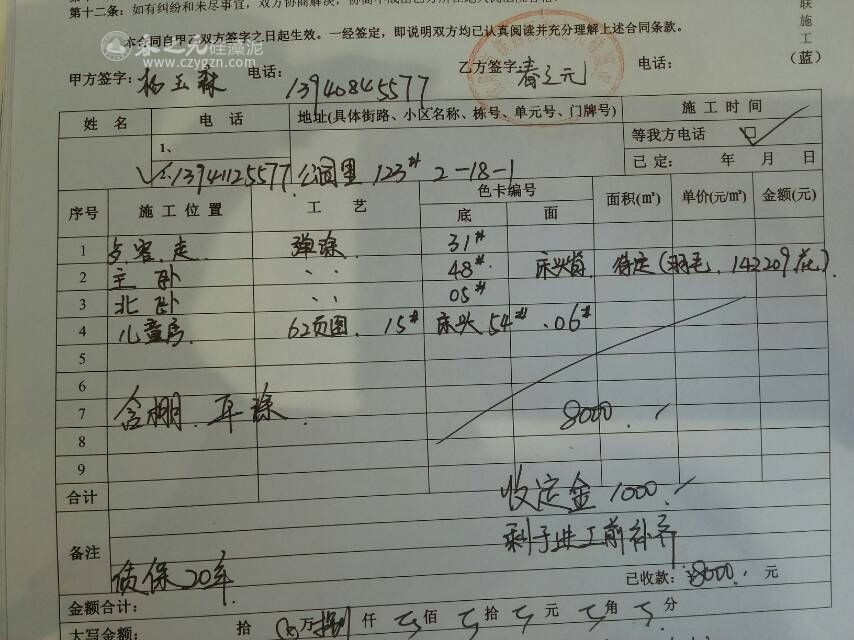 第十二条：如有纠纷和未尽事宜，双方协商解决，
本合同自甲乙双方签字之日起生效。一经签定，即说明双方均已认真阅读并充分理解上述合同条款。
春之元硅藻泥
www.czygzn.com
联
施
工
（蓝）
甲方签字：杨玉森 电话：13940845577 乙方签字：春之元 电话：
姓 名 电 话 地址（具体街路、小区名称、栋号、单元号、门牌号） 施 工 时 间
1、 等我方电话 □
2、13941125577 公园里 123# 2-18-1 已定： 年 月 日
序号 施 工 位 置 工 艺 色卡编号 面积(m²) 单价(元/m²) 金额(元)
底 面
1 客.走 弹涂 31#
2 主卧 〃 48# 床头背 待定(羽毛. 142209花)
3 北卧 〃 05#
4 儿童房 62页图. 15# 床头 54# .06#
5
6
7 含棚. 平涂 8000.
8
9
合计 收定金 1000.
备注 剩于进工前补齐
质保 20年 已收款：¥8000. 元
金额合计：
大写金额： 拾 万 捌 仟 佰 拾 元 角 分